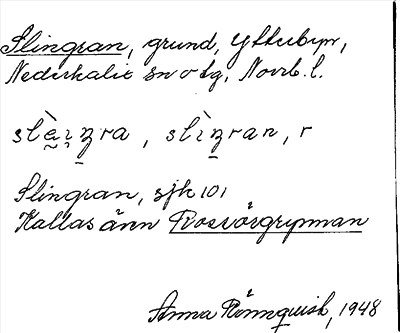 Slingran, grund, Ytterbyn,
Nederkalix sn o tg, Norrb. l.
slingran, r
Slingran, sjk 101
Kallas även Rosvörgrynnan
Anna Rönnquist, 1948